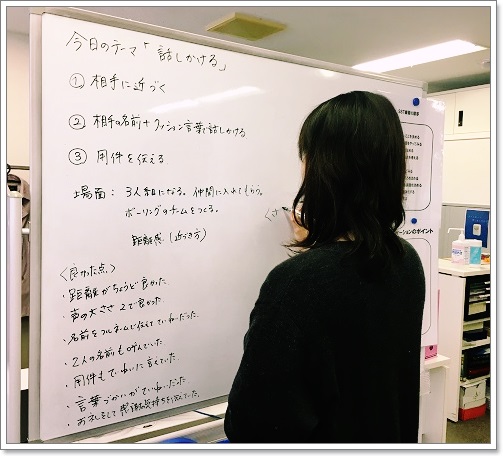 今日のテーマ「話しかける」
① 相手に近づく
② 相手の名前+クッション言葉で話しかける
③ 用件を伝える
場面: 3人組になる。仲間に入れてもらう。
ボーリングのチームをつくる。
距離感(近づき方)
〈良かった点〉
・距離がちょうど良かった
・声の大きさ2で良かった
・名前をフルネームで伝えていてていねいだった
・2人の名前も呼んでいた
・用件もていねいに言えていた
・言葉づかいがていねいだった
・お礼をして感謝の気持ちを伝えていた。
ーションのポイント